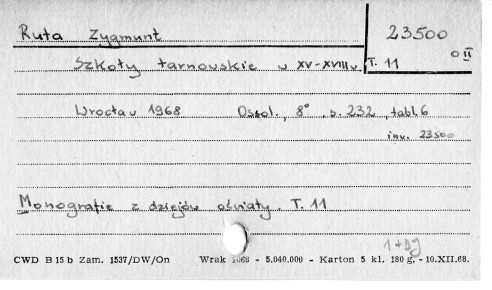 Ruta Zygmunt 23500
O II
Szkoły tarnowskie w XV-XVIII w. T. 11
Wrocław 1968 Ossol., 8°, s. 232, tabl. 6
inw. 23500
Monografie z dziejów oświaty. T. 11
1+DJ
CWD B 15 b Zam. 1537/DW/On Wrak 1968 - 5.040.000 - Karton 5 kl. 180 g, - 10.XII.68.